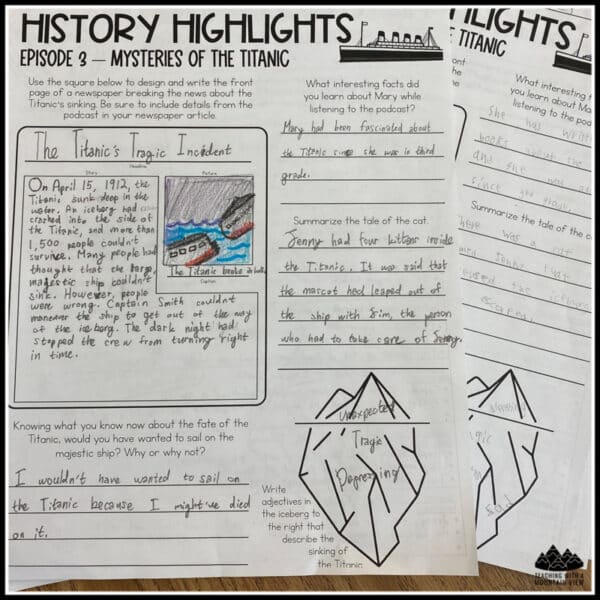 HISTORY HIGHLIGHTS
EPISODE 3 — MYSTERIES OF THE TITANIC
Use the square below to design and write the front
page of a newspaper breaking the news about the
Titanic's sinking. Be sure to include details from the
podcast in your newspaper article.
The Titanic's Tragic Incident
Headline
Story
Picture
On April 15, 1912, the
Titanic sunk deep in the
water. An iceberg had
crashed into the side of
the Titanic, and more than
1,500 people couldn't
survive. Many people had
thought that the large,
majestic ship couldn't
sink. However, people
were wrong. Captain Smith couldn't
maneuver the ship to get out of the way
of the iceberg. The dark night had
stopped the crew from turning right
in time.
The Titanic broke in half.
Caption
Knowing what you know now about the fate of the
Titanic, would you have wanted to sail on the
majestic ship? Why or why not?
I wouldn't have wanted to sail on
the Titanic because I might've died
on it.
What interesting facts did
you learn about Mary while
listening to the podcast?
Mary had been fascinated about
the Titanic since she was in third
grade.
Summarize the tale of the cat.
Jenny had four kittens inside
the Titanic. It was said that
the mascot had leaped out of
the ship with Jim, the person
who had to take care of Jenny.
Unexpected
Tragic
Depressing
Write
adjectives in
the iceberg to
the right that
describe the
sinking of
the Titanic.
HLIGHTS
TITANIC
What interesting
you learn about Mary
listening to the podcast?
She was
books about the
and she was
since
Summarize the tale of the ca
There was a
named Jenny that
escaped.
Sad
TEACHING WITH A
MOUNTAIN VIEW